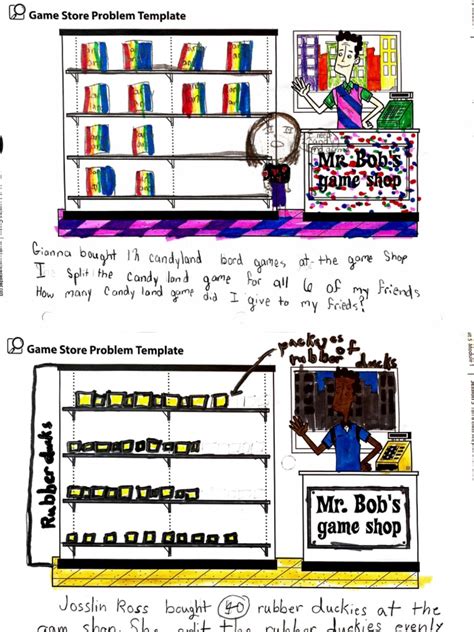 Game Store Problem Template
Mr. Bob's
game shop
Gianna bought candyland bord games at the game Shop
I Split the Candy land game for all 6 of my friends
How many Candy land game did I give to my frieds?
packges of
rubber ducks
Game Store Problem Template
Rubber ducks
Mr. Bob's
game shop
Josslin Ross bought 40 rubber duckies at the
gam shop. She split the rubber duckies evenly